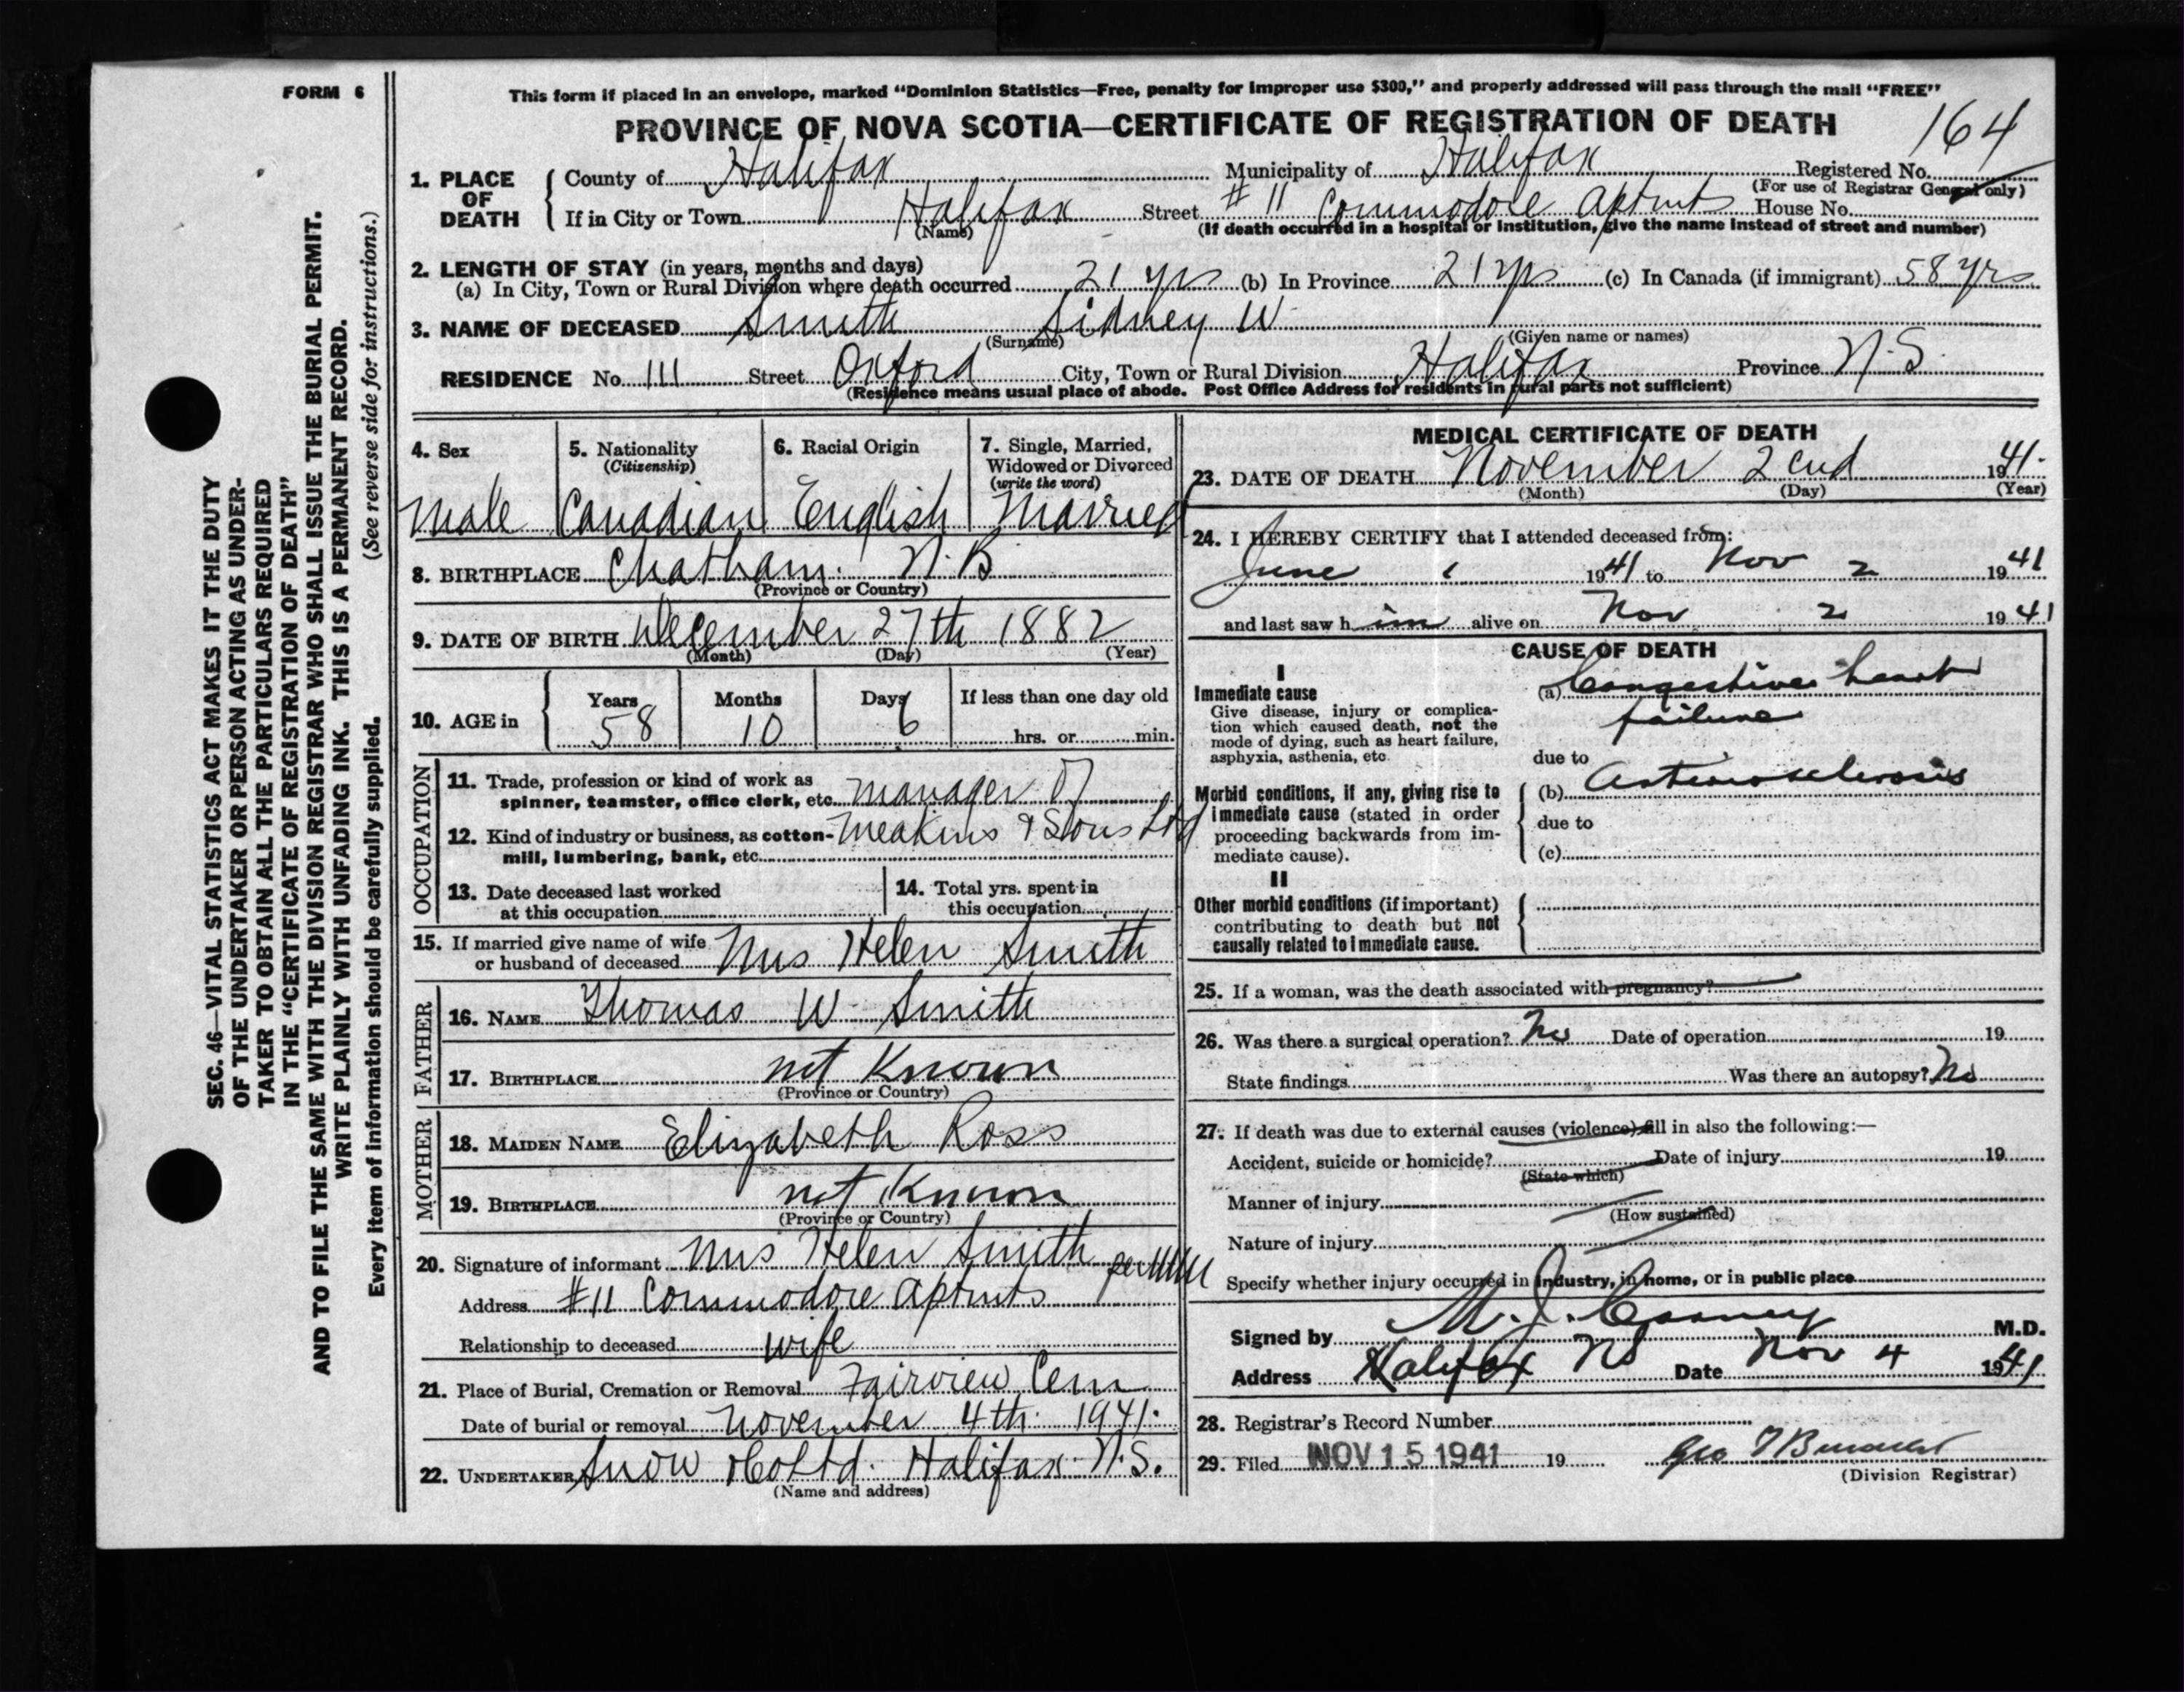 FORM 6
This form if placed in an envelope, marked "Dominion Statistics—Free, penalty for improper use $300," and properly addressed will pass through the mail "FREE"
PROVINCE OF NOVA SCOTIA—CERTIFICATE OF REGISTRATION OF DEATH
164
1. PLACE OF DEATH
County of Halifax Municipality of Halifax Registered No.
(For use of Registrar General only)
If in City or Town Halifax Street # 11 Commodore Aptmts House No.
(Name) (If death occurred in a hospital or institution, give the name instead of street and number)
2. LENGTH OF STAY (in years, months and days)
(a) In City, Town or Rural Division where death occurred 21 yrs (b) In Province 21 yrs (c) In Canada (if immigrant) 58 yrs
3. NAME OF DECEASED Smith Sidney W
(Surname) (Given name or names)
RESIDENCE No. 111 Street Oxford City, Town or Rural Division Halifax Province N.S.
(Residence means usual place of abode. Post Office Address for residents in rural parts not sufficient)
4. Sex
Male
5. Nationality
(Citizenship)
Canadian
6. Racial Origin
English
7. Single, Married,
Widowed or Divorced
(write the word)
Married
8. BIRTHPLACE Chatham. N.B
(Province or Country)
9. DATE OF BIRTH December 27th 1882
(Month) (Day) (Year)
10. AGE in
Years Months Days If less than one day old
58 10 6 hrs. or min.
OCCUPATION
11. Trade, profession or kind of work as
spinner, teamster, office clerk, etc. Manager of
12. Kind of industry or business, as cotton- Meakins & Sons Ltd
mill, lumbering, bank, etc.
13. Date deceased last worked
at this occupation
14. Total yrs. spent in
this occupation
15. If married give name of wife
or husband of deceased Mrs Helen Smith
FATHER
16. NAME Thomas W Smith
17. BIRTHPLACE not Known
(Province or Country)
MOTHER
18. MAIDEN NAME Elizabeth Ross
19. BIRTHPLACE not Known
(Province or Country)
20. Signature of informant Mrs Helen Smith per
Address #11 Commodore Aptmts
Relationship to deceased wife
21. Place of Burial, Cremation or Removal Fairview Cem
Date of burial or removal November 4th 1941.
22. UNDERTAKER Snow & Co Ltd. Halifax. N.S.
(Name and address)
MEDICAL CERTIFICATE OF DEATH
23. DATE OF DEATH November 2cnd 1941.
(Month) (Day) (Year)
24. I HEREBY CERTIFY that I attended deceased from:
June 1 1941 to Nov 2 1941
and last saw him alive on Nov 2 1941
CAUSE OF DEATH
I
Immediate cause
Give disease, injury or complica-
tion which caused death, not the
mode of dying, such as heart failure,
asphyxia, asthenia, etc
(a) Congestive heart
failure
due to
Morbid conditions, if any, giving rise to
immediate cause (stated in order
proceeding backwards from im-
mediate cause).
(b) Arteriosclerosis
due to
(c)
II
Other morbid conditions (if important)
contributing to death but not
causally related to immediate cause.
25. If a woman, was the death associated with pregnancy?
26. Was there a surgical operation? No Date of operation 19
State findings Was there an autopsy? No
27. If death was due to external causes (violence) fill in also the following:—
Accident, suicide or homicide? Date of injury 19
(State which)
Manner of injury
(How sustained)
Nature of injury
Specify whether injury occurred in industry, in home, or in public place
Signed by M.D.
Address Halifax NS Date Nov 4 1941
28. Registrar's Record Number
29. Filed NOV 15 1941 19
(Division Registrar)
SEC. 46—VITAL STATISTICS ACT MAKES IT THE DUTY
OF THE UNDERTAKER OR PERSON ACTING AS UNDER-
TAKER TO OBTAIN ALL THE PARTICULARS REQUIRED
IN THE "CERTIFICATE OF REGISTRATION OF DEATH"
AND TO FILE THE SAME WITH THE DIVISION REGISTRAR WHO SHALL ISSUE THE BURIAL PERMIT.
WRITE PLAINLY WITH UNFADING INK. THIS IS A PERMANENT RECORD.
Every item of information should be carefully supplied. (See reverse side for instructions.)